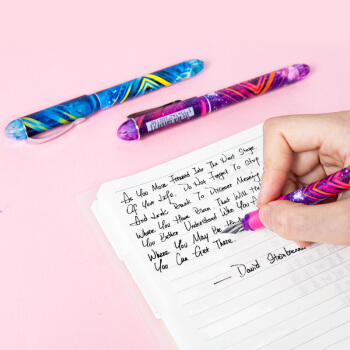 As You Move Forward Into The Next Stage
Of Your Life. Do Not Forget To Stop
And Look Back To Discover Meaning
Where You Have Been That Will
You Better Understand Who You
Where You May Be
You Can Get There.
— David